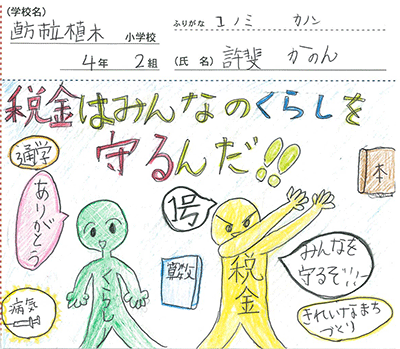 (学校名) 直方市立植木 小学校
4年 2組
ふりがな コノミ カノン
(氏 名) 許斐 かのん
税金はみんなのくらしを
守るんだ!!
通学
ありがとう
1号
本
くらし
算数
税金
みんなを
守るぞ!!!
病気
きれいなまち
づくり